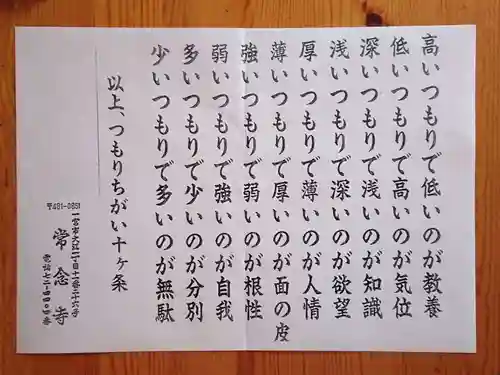 高いつもりで低いのが教養
低いつもりで高いのが気位
深いつもりで浅いのが知識
浅いつもりで深いのが欲望
厚いつもりで薄いのが人情
薄いつもりで厚いのが面の皮
強いつもりで弱いのが根性
弱いつもりで強いのが自我
多いつもりで少いのが分別
少いつもりで多いのが無駄
以上、つもりちがい十ヶ条
一宮市大江二丁目十番二十六号
常念寺